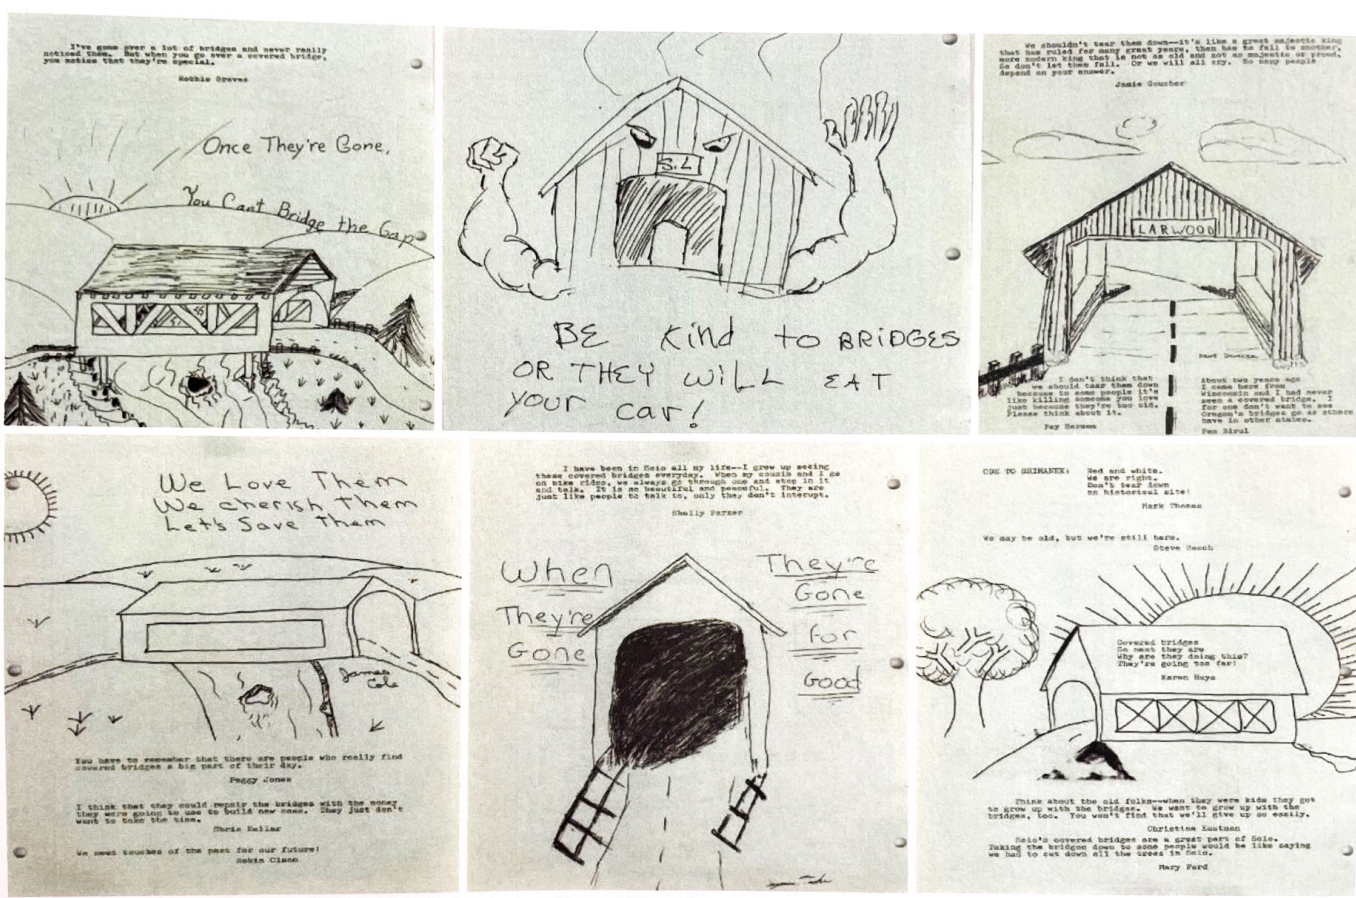 I've gone over a lot of bridges and never really
noticed them. But when you go over a covered bridge,
you notice that they're special.
Robbie Graves
Once They're Gone,
You Cant Bridge the Gap
S.L
BE Kind to BRIDGES
OR THEY WILL EAT
your car!
We shouldn't tear them down--it's like a great majestic king
that has ruled for many great years, then has to fall to another,
more modern king that is not as old and not so majestic or proud.
So don't let them fall. Or we will all cry. So many people
depend on your answer.
Jamie Goucher
LARWOOD
Dave Duncan
I don't think that
we should tear them down
because to some people it's
like killing someone you love
just because they're too old.
Please think about it.
Pay
About two years ago
I came here from
Wisconsin and I had never
seen a covered bridge. I
for one don't want to see
Oregon's bridges go as others
have in other states.
Pam Birul
We Love Them
We cherish Them
Let's Save Them
James
Cole
You have to remember that there are people who really find
covered bridges a big part of their day.
Peggy Jones
I think that they could repair the bridges with the money
they were going to use to build new ones. They just don't
want to take the time.
Chris Kellar
We need touches of the past for our future!
Robin Olson
I have been in Scio all my life--I grew up seeing
these covered bridges everyday. When my cousin and I go
on bike rides, we always go through one and stop in it
and talk. It is so beautiful and peaceful. They are
just like people to talk to, only they don't interupt.
Shelly Parker
When
They're
Gone
They're
Gone
for
Good
ODE TO SHIMANEK:
Red and white.
We are right.
Don't tear down
an historical site!
Mark Thomas
We may be old, but we're still here.
Steve
Covered bridges
So neat they are
Why are they doing this?
They're going too far!
Karen Hays
Think about the old folks--when they were kids they got
to grow up with the bridges. We want to grow up with the
bridges, too. You won't find that we'll give up so easily.
Christina Eastman
Scio's covered bridges are a great part of Scio.
Taking the bridges down to some people would be like saying
we had to cut down all the trees in Scio.
Mary Ford